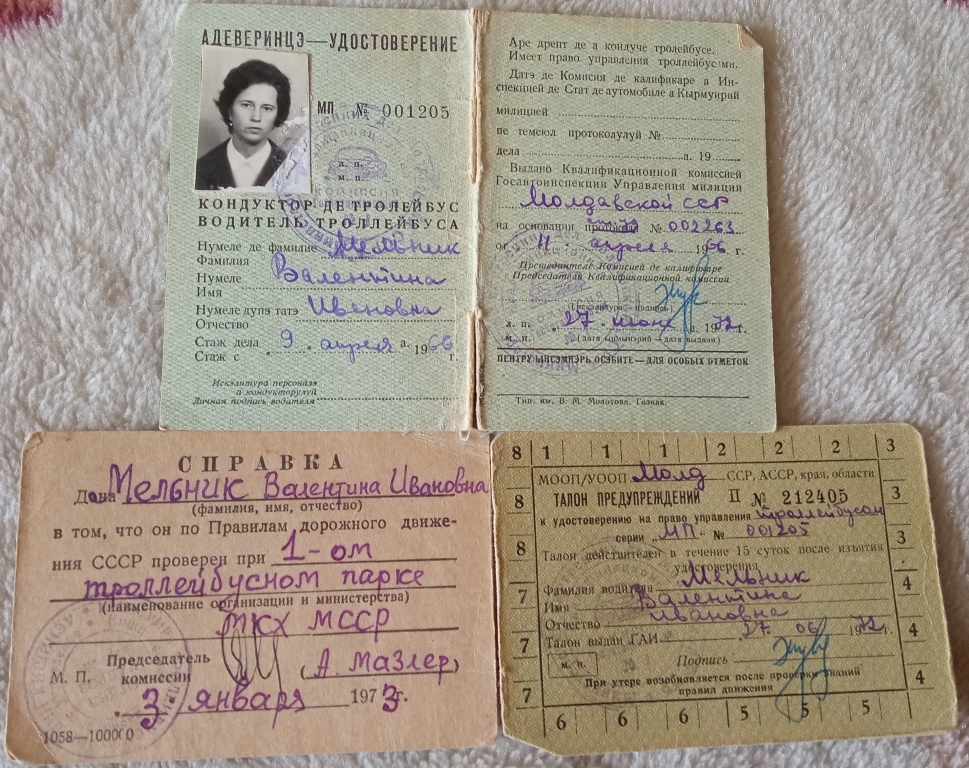 АДЕВЕРИНЦЭ—УДОСТОВЕРЕНИЕ
МП № 001205
л. п.
м. п.
КОНДУКТОР ДЕ ТРОЛЕЙБУС
ВОДИТЕЛЬ ТРОЛЛЕЙБУСА
Нумеле де фамилие Мельник
Фамилия
Нумеле Валентина
Имя
Нумеле дупэ татэ Ивановна
Отчество
Стаж дела 9 апреля а. 1966
Стаж с г.
Искэлитура персоналэ
а кондукторулуй
Личная подпись водителя
Аре дрепт де а кондуче тролейбусе.
Имеет право управления троллейбусами.
Датэ де Комисия де калификаре а Ин-
спекцией де Стат де аутомобиле а Кырмуирий
милицией
пе темеюл протоколулуй №
дела а. 19
Выдано Квалификационной комиссией
Госавтоинспекции Управления милиции
Молдавской ССР
на основании № 002263
от 11 апреля 1966 г.
Прешединтеле Комисией де калификаре
Председатель Квалификационной комиссии
(искэлитура - подпись)
л. п. 27 июня а. 1972 г.
м. п. (дата ынмынэрий — дата выдачи)
ПЕНТРУ ЫНСЭМНЭРЬ ОСЭБИТЕ—ДЛЯ ОСОБЫХ ОТМЕТОК
Тип. им. В. М. Молотова. Гознак.
СПРАВКА
Дана Мельник Валентина Ивановна
(фамилия, имя, отчество)
в том, что он по Правилам дорожного движе-
ния СССР проверен при 1-ом
троллейбусном парке
(наименование организации и министерства)
МКХ МССР
Председатель
М. П. комиссии (А. Мазлер)
3 января 1973 г.
1058—100000
8 1 1 1 2 2 2 3
МООП/УООП Молд ССР, АССР, края, области
8 ТАЛОН ПРЕДУПРЕЖДЕНИЙ П № 212405 3
к удостоверению на право управления троллейбусом
серии „МП" № 001205
8 Талон действителен в течение 15 суток после изъятия 3
удостоверения
Фамилия водителя Мельник
7 Имя Валентина 4
Отчество Ивановна
7 Талон выдан ГАИ 27 06 1972 г. 4
м. п. Подпись
7 При утере возобновляется после проверки знаний 4
правил движения
6 6 6 5 5 5